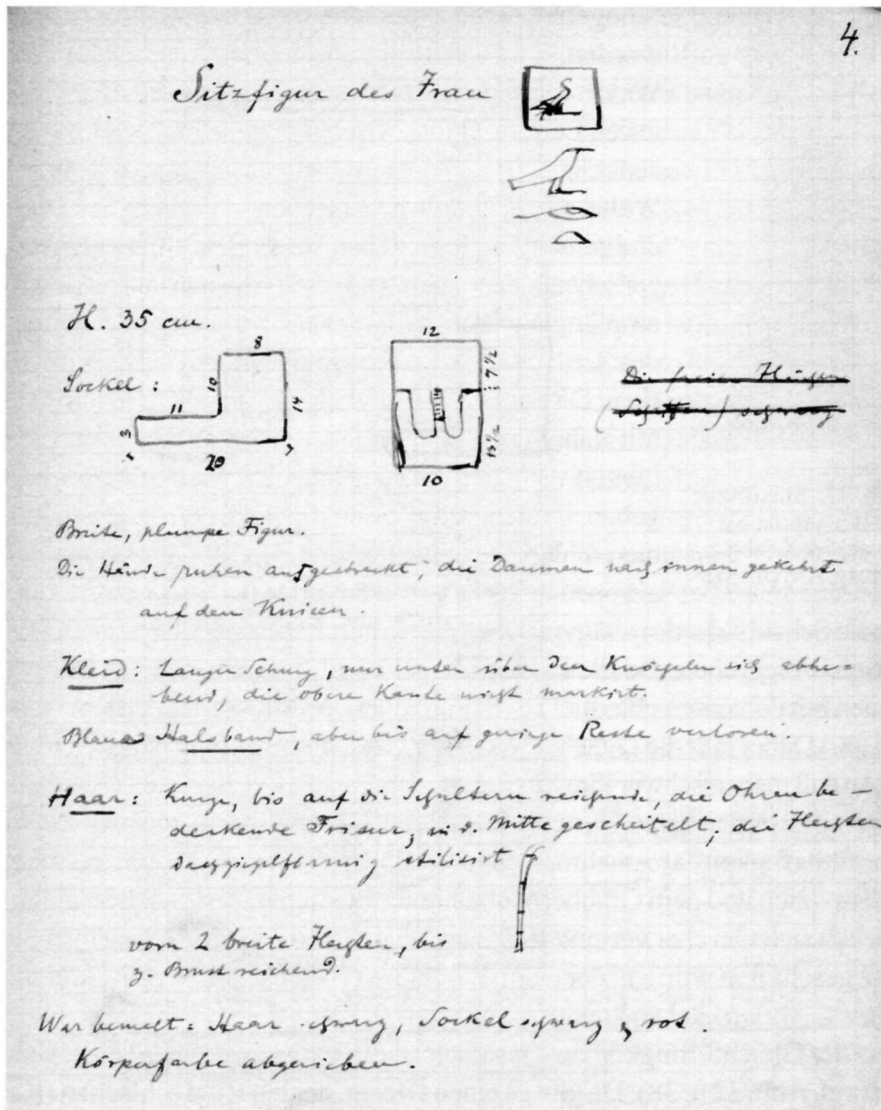 4.
Sitzfigur des Frau
H. 35 cm.
Sockel :
8
10
14
11
3
20
12
7 1/2
13 1/2
10
Die freien Flächen
schwarz
Breite, plumpe Figur.
Die Hände ruhen ausgestreckt, die Daumen nach innen gekehrt
auf den Knieen.
Kleid : Langer Schurz, nur unten über den Knöcheln sich abhe-
bend, die obere Kante nicht markirt.
Blaues Halsband, aber bis auf geringe Reste verloren.
Haar : Kurze, bis auf die Schultern reichende, die Ohren be-
deckende Frisur, in d. Mitte gescheitelt; die Flechten
dachziegelförmig stilisirt
vorn 2 breite Flechten, bis
z. Brust reichend.
War bemalt : Haar schwarz, Sockel schwarz, rot.
Körperfarbe abgerieben.